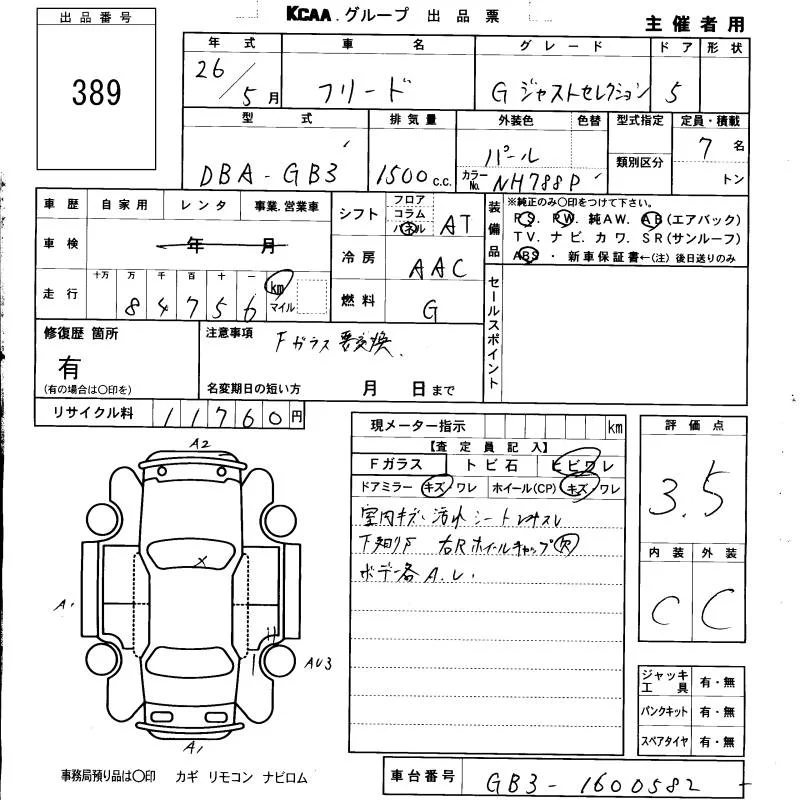 出品番号
389
KCAA グループ 出品票
主催者用
年式 車名 グレード ドア 形状
26/5月 フリード G ジャストセレクション 5
型式 排気量 外装色 色替 型式指定 定員・積載
DBA-GB3 1500c.c. パール カラーNo. NH788P 類別区分 7名 トン
車歴 自家用 レンタ 事業.営業車
車検 年 月
走行 十万 万 千 百 十 一
84756 km マイル
シフト フロア コラム パネル AT
冷房 AAC
燃料 G
装備品
※純正のみ〇印をつけて下さい。
PS. PW. 純AW. AB(エアバック)
TV. ナビ. カワ. SR(サンルーフ)
ABS. 新車保証書←(注) 後日送りのみ
セールスポイント
修復歴 箇所
有
(有の場合は〇印を)
注意事項 Fガラス要交換.
名変期日の短い方 月 日まで
リサイクル料 11760円
現メーター指示 km
【査定員記入】
Fガラス トビ石 ヒビワレ
ドアミラー キズ・ワレ ホイール(CP) キズ・ワレ
室内キズ・汚れ シート
下 右Rホイールキャップ欠
ボデー各A.U.
評価点
3.5
内装 外装
C C
A2
X
A1
H
AU3
A1
ジャッキ工具 有・無
パンクキット 有・無
スペアタイヤ 有・無
事務局預り品は〇印 カギ リモコン ナビロム
車台番号 GB3-1600582